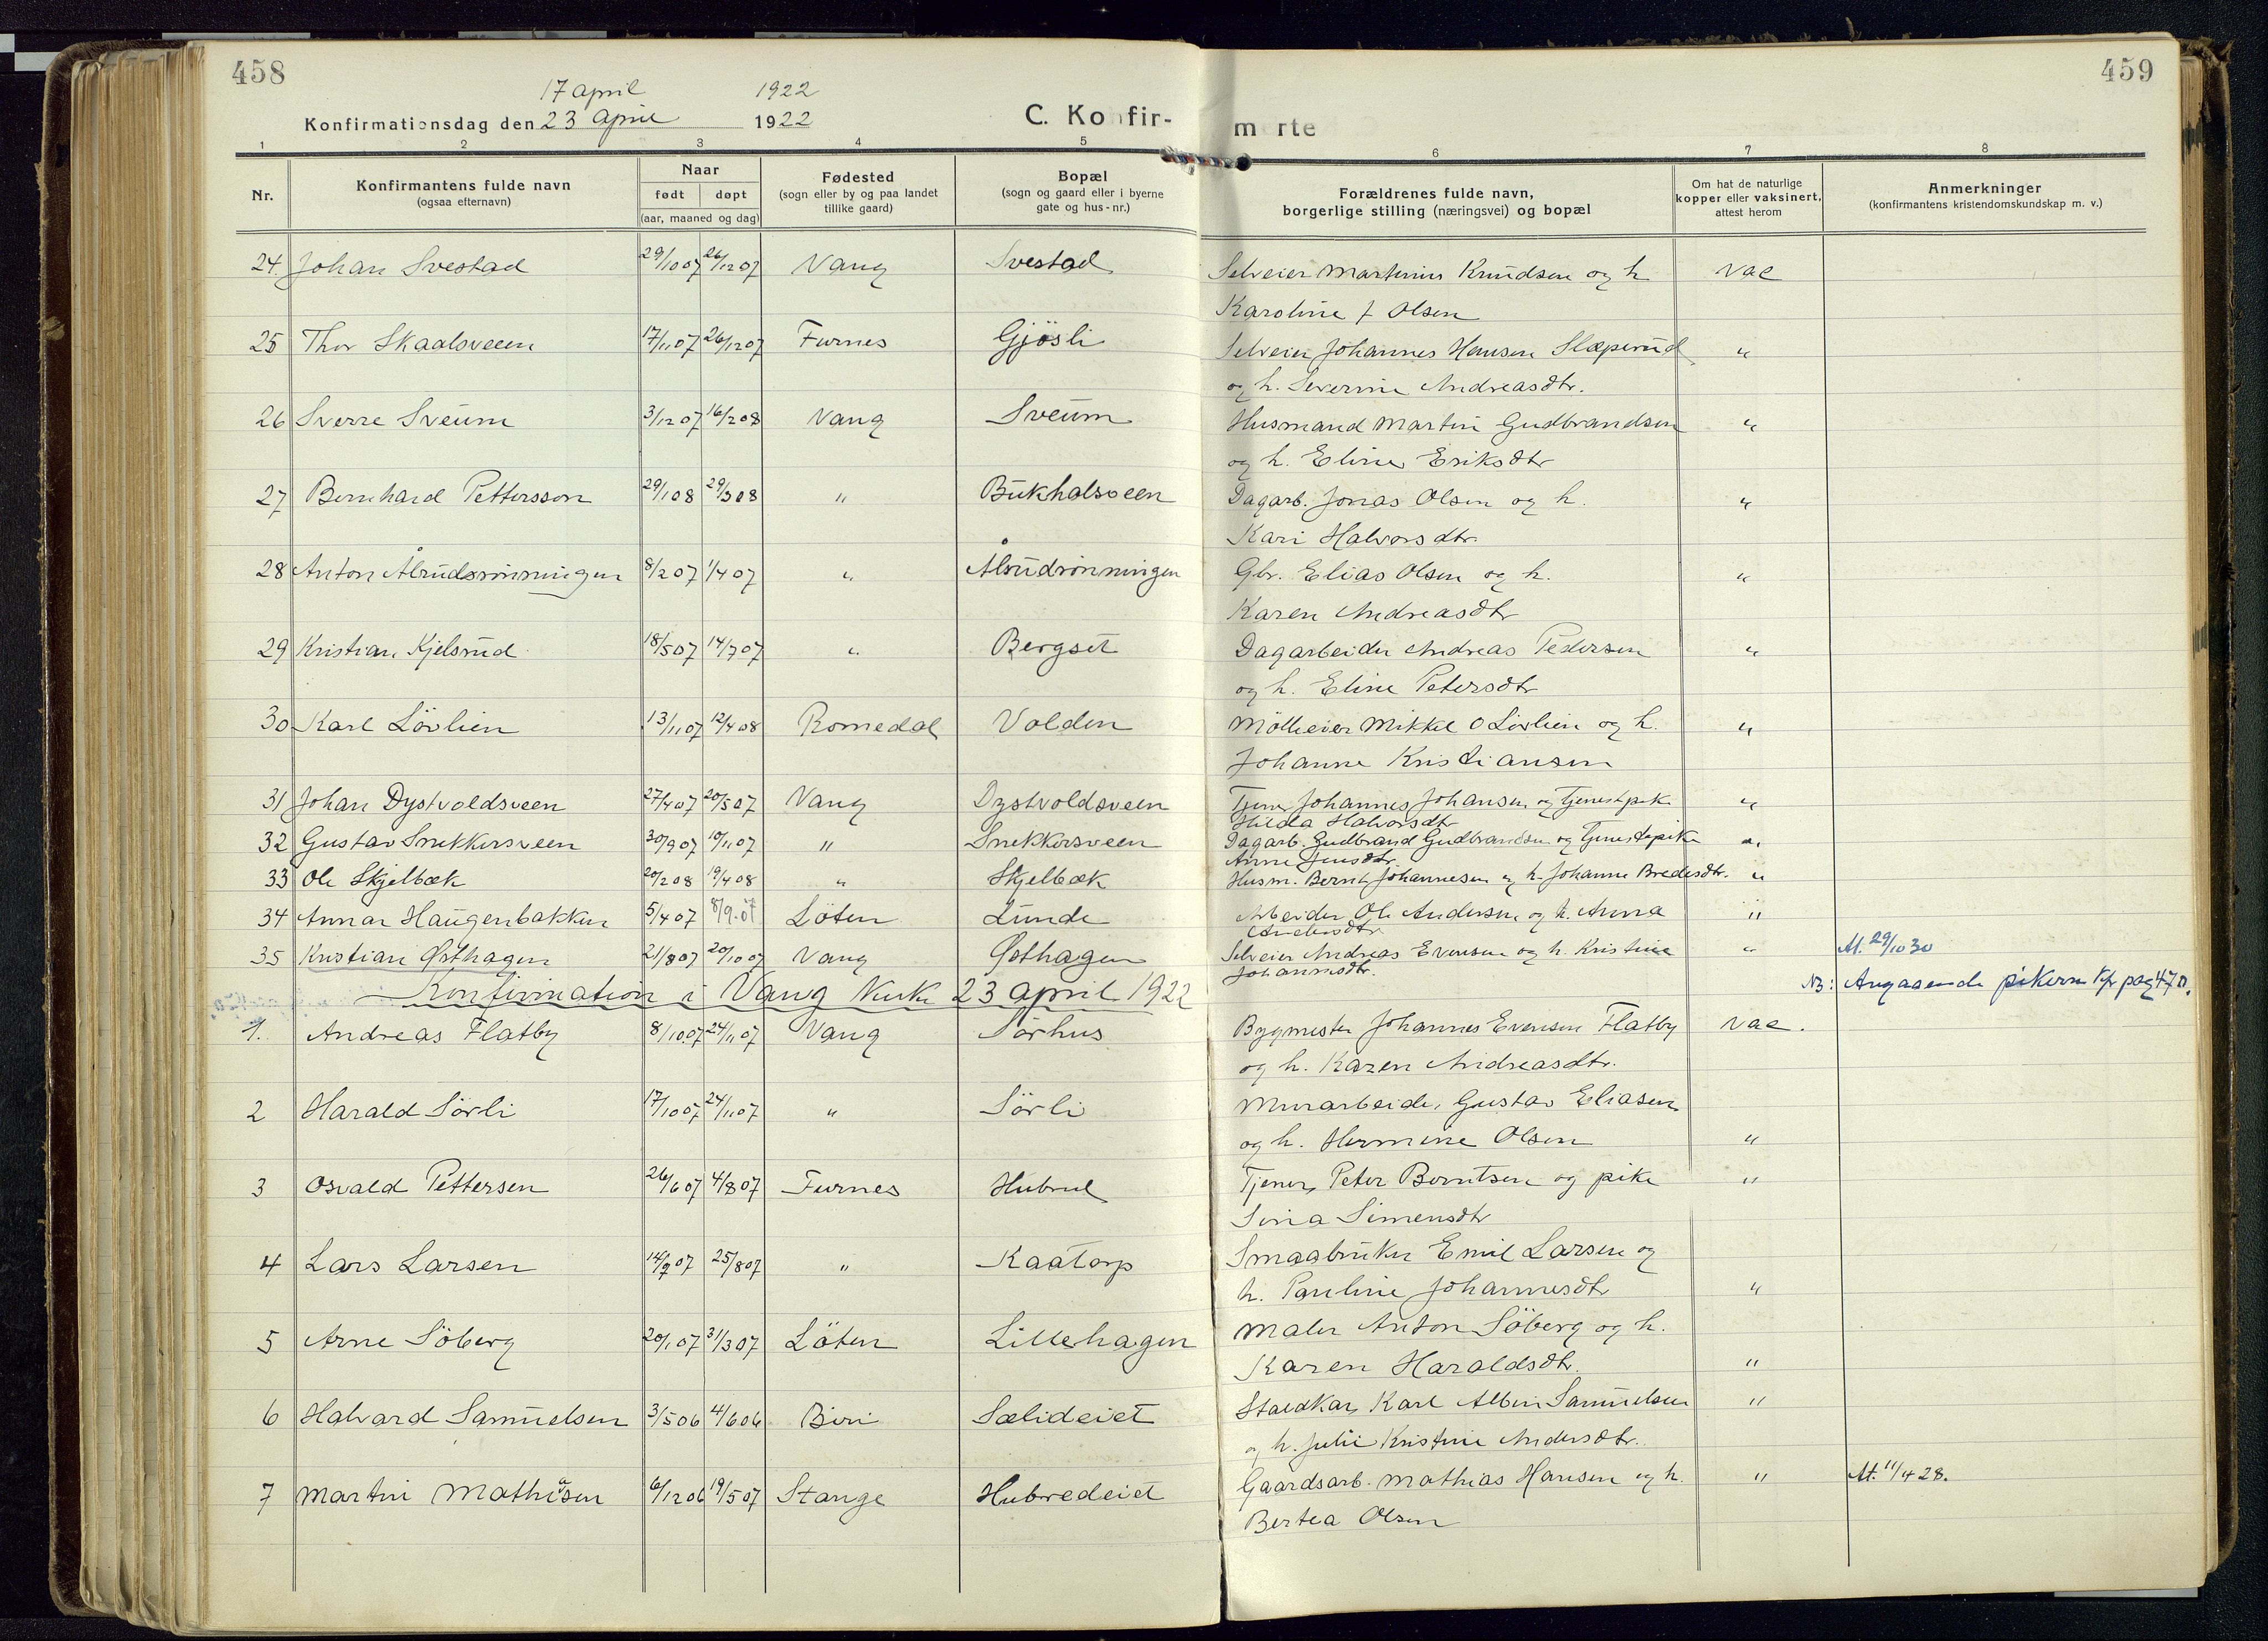 458
459
17 april 1922
Konfirmationsdag den 23 april 1922
C. Konfir-
merte
1 2 3 4 5 6 7 8
Nr.
Konfirmantens fulde navn
(ogsaa efternavn)
Naar
født døpt
(aar, maaned og dag)
Fødested
(sogn eller by og paa landet
tillike gaard)
Bopæl
(sogn og gaard eller i byerne
gate og hus-nr.)
Forældrenes fulde navn,
borgerlige stilling (næringsvei) og bopæl
Om hat de naturlige
kopper eller vaksinert,
attest herom
Anmerkninger
(konfirmantens kristendomskundskap m. v.)
24. Johan Svestad 29/10 07 26/12 07 Vang Svestad Selveier Martinius Knudsen og h Vac
Karoline f Olsen
25 Thor Skaalsveen 17/11 07 26/12 07 Furnes Gjösli Selveier Johannes Hansen Slæperud "
og h. Severine Andreasdtr.
26 Sverre Sveum 3/12 07 16/2 08 Vang Sveum Husmand Martin Gudbrandsen "
og h. Eline Eriksdtr
27 Bernhard Pettersson 29/1 08 29/3 08 " Bukhalsveen Dagarb. Jonas Olsen og h. "
Kari Halvorsdtr.
28 Anton Ålrudsrönningen 8/2 07 1/4 07 " Ålrudrönningen Gbr. Elias Olsen og h. "
Karen Andreasdtr
29 Kristian Kjelsrud 18/5 07 14/7 07 " Bergset Dagarbeider Andreas Pedersen "
og h. Eline Petersdtr
30 Karl Lövlien 13/11 07 12/4 08 Romedal Volden Mölleeier Mikkel O Lövlien og h. "
Johanne Kristiansen
31 Johan Dystvoldsveen 27/4 07 20/5 07 Vang Dystvoldsveen Tjener Johannes Johansen og tjenestpike "
Hilda Halvorsdtr
32 Gustav Snekkersveen 30/9 07 10/11 07 " Snekkersveen Dagarb. Gudbrand Gudbrandsen og tjenestepike "
Anne Jensdtr.
33 Ole Skjelbæk 20/2 08 19/4 08 " Skjelbæk Husm. Bernt Johannesen og h. Johanne Bredesdtr. "
34 Annar Haugenbakken 5/4 07 8/9 07 Löten Lunde Arbeider Ole Andersen og h. Anna "
Andersdtr.
35 Kristian Østhagen 21/8 07 20/10 07 Vang Østhagen Selveier Andreas Evensen og h. Kristine " At. 29/10 30
Johannesdtr.
Konfirmation i Vang kirke 23 april 1922 NB: Angaaende pikerne kfr pag 470.
1. Andreas Flatby 8/10 07 24/11 07 Vang Sörhus Bygmester Johannes Evensen Flatby Vac.
og h. Karen Andreasdtr.
2 Harald Sörli 17/10 07 24/11 07 " Sörli Murarbeider Gustav Eliasen
og h. Hermine Olsen "
3 Osvald Pettersen 26/6 07 4/8 07 Furnes Hubred Tjener Peter Berntsen og pike "
Sina Simensdtr
4 Lars Larsen 14/7 07 25/8 07 " Kaatorp Smaabruker Emil Larsen og
h. Pauline Johannesdtr "
5 Arne Söberg 20/1 07 31/3 07 Löten Lillehagen Maler Anton Söberg og h.
Karen Haraldsdtr. "
6 Halvard Samuelsen 3/5 06 4/6 06 Biri Sælideiet Staldkar Karl Albin Samuelsen "
og h. Julie Kristine Andersdtr.
7 Martin Mathisen 6/12 06 19/5 07 Stange Hubredeiet Gaardsarb. Mathias Hansen og h. " At. 11/4 28.
Bertea Olsen